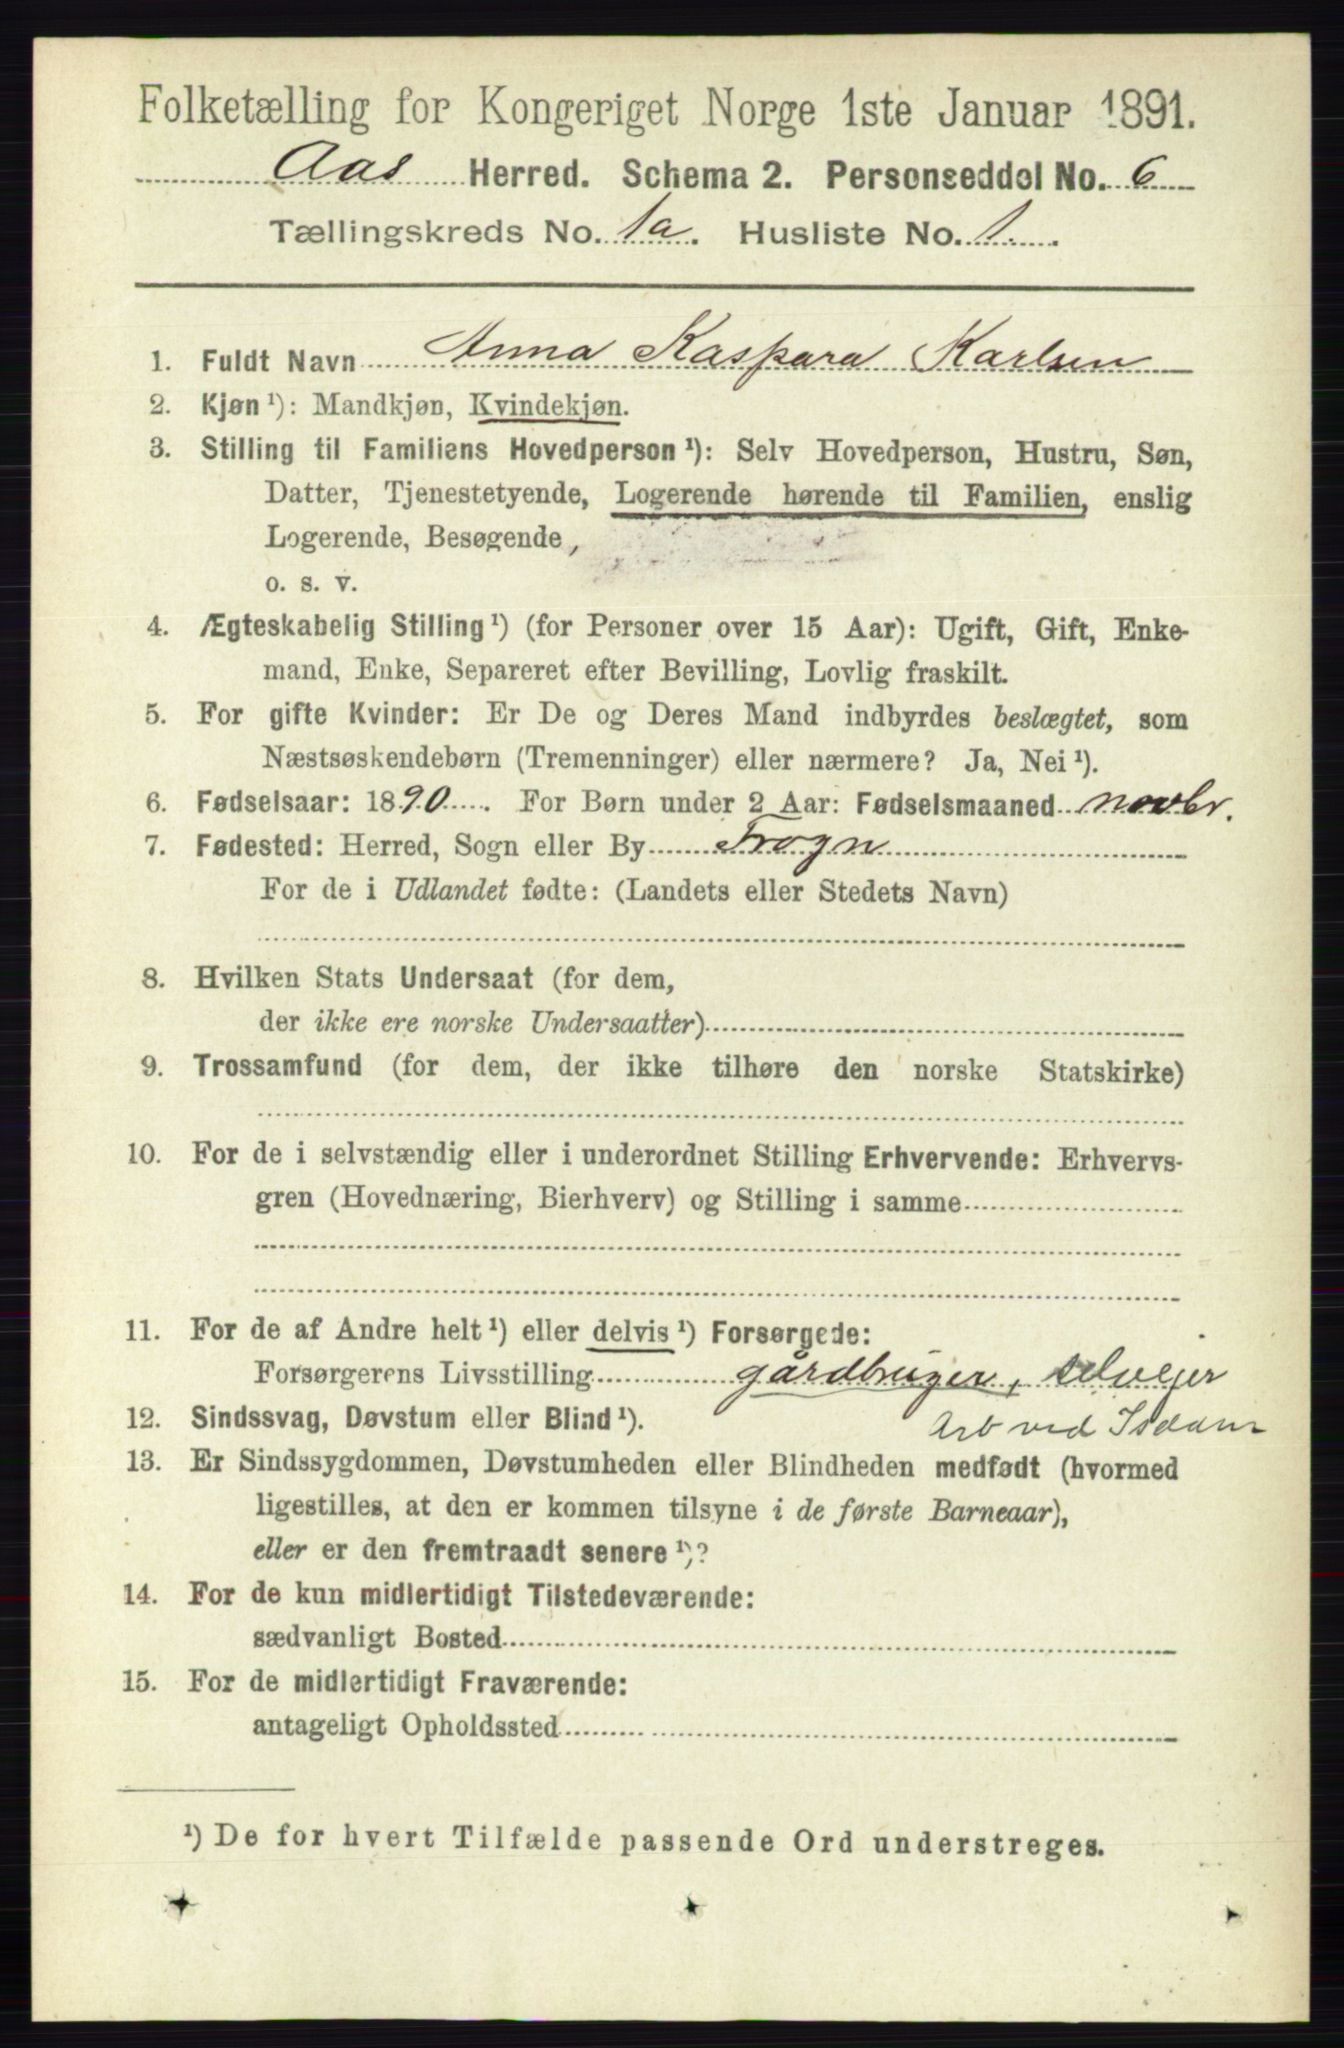 Folketælling for Kongeriget Norge 1ste Januar 1891.
Aas Herred. Schema 2. Personseddel No. 6
Tællingskreds No. 1a. Husliste No. 1.
1. Fuldt Navn Anna Kaspara Karlsen
2. Kjøn ¹): Mandkjøn, Kvindekjøn.
3. Stilling til Familiens Hovedperson ¹): Selv Hovedperson, Hustru, Søn,
Datter, Tjenestetyende, Logerende hørende til Familien, enslig
Logerende, Besøgende,
o. s. v.
4. Ægteskabelig Stilling ¹) (for Personer over 15 Aar): Ugift, Gift, Enke-
mand, Enke, Separeret efter Bevilling, Lovlig fraskilt.
5. For gifte Kvinder: Er De og Deres Mand indbyrdes beslægtet, som
Næstsøskendebørn (Tremenninger) eller nærmere? Ja, Nei ¹).
6. Fødselsaar: 1890. For Børn under 2 Aar: Fødselsmaaned novbr.
7. Fødested: Herred, Sogn eller By Frogn
For de i Udlandet fødte: (Landets eller Stedets Navn)
8. Hvilken Stats Undersaat (for dem,
der ikke ere norske Undersaatter)
9. Trossamfund (for dem, der ikke tilhøre den norske Statskirke)
10. For de i selvstændig eller i underordnet Stilling Erhvervende: Erhvervs-
gren (Hovednæring, Bierhverv) og Stilling i samme
11. For de af Andre helt ¹) eller delvis ¹) Forsørgede:
Forsørgerens Livsstilling gårdbruger, selvejer
12. Sindssvag, Døvstum eller Blind ¹). Arb ved Isdam
13. Er Sindssygdommen, Døvstumheden eller Blindheden medfødt (hvormed
ligestilles, at den er kommen tilsyne i de første Barneaar),
eller er den fremtraadt senere ¹)?
14. For de kun midlertidigt Tilstedeværende:
sædvanligt Bosted
15. For de midlertidigt Fraværende:
antageligt Opholdssted
¹) De for hvert Tilfælde passende Ord understreges.